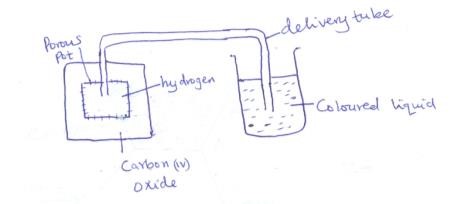 delivery tube
Porous
pot
hydrogen
Coloured liquid
Carbon (iv)
oxide